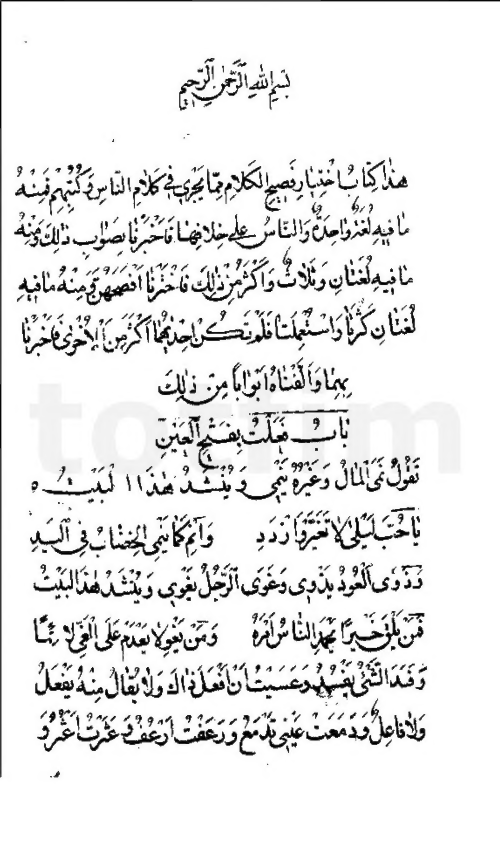 بسم الله الرحمن الرحيم
هذا كتاب اختيار فصيح الكلام مما يجري في كلام الناس وكتبهم فمنه
ما فيه لغة واحدة والناس على خلافها فاخبرنا بصواب ذلك ومنه
ما فيه لغتان وثلاث واكثر من ذلك فاخترنا افصحهن ومنه ما فيه
لغتان كثرتا واستعملتا فلم تكن احديهما اكثر من الاخرى فاخبرنا
بهما والفناه ابوابا من ذلك
باب فعلت بفتح العين
تقول نمى المال وغيره ينمي وينشد هذا البيت
يا حب ليلى لا تغير وازدد وانم كما ينمي الخضاب في اليد
وذوى العود يذوي وغوى الرجل يغوي وينشد هذا البيت
فمن يلق خيرا يحمد الناس امره ومن يغو لا يعدم على الغي لائما
وفسد الشئ يفسد وعسيت ان افعل ذاك ولا يقال منه يفعل
ولا فاعل ودمعت عيني تدمع ورعفت ارعف وعثرت اعثر و
totfim